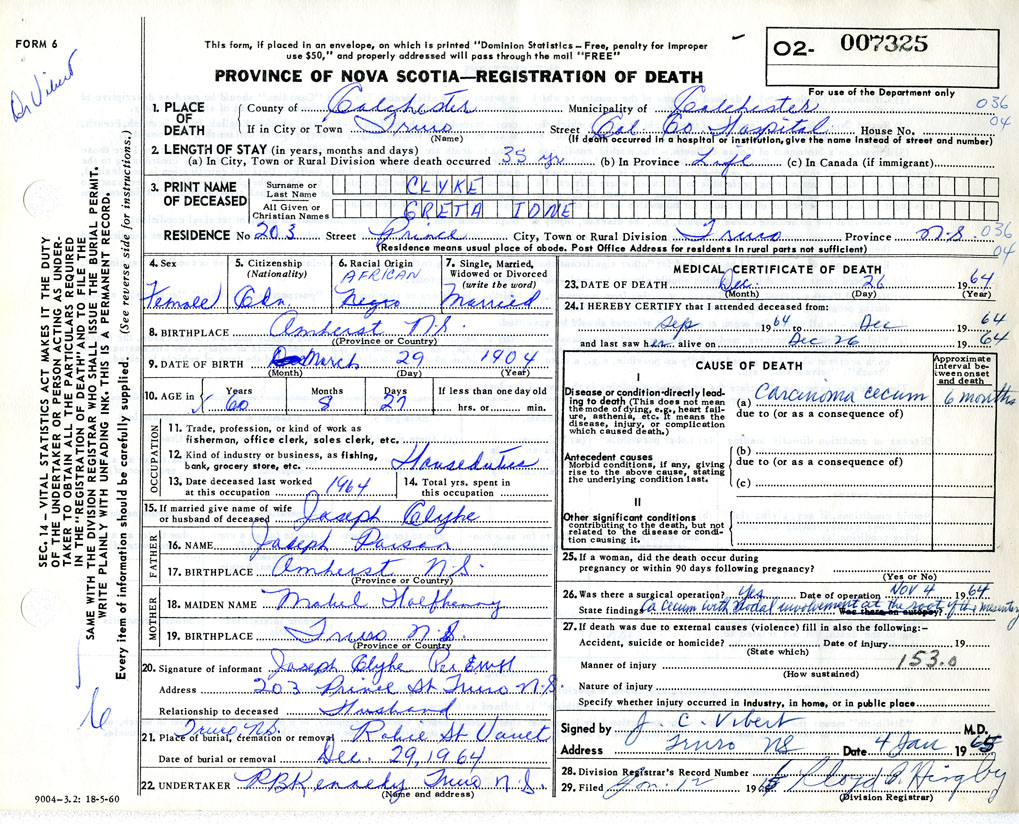 FORM 6
Dr Vibert
This form, if placed in an envelope, on which is printed "Dominion Statistics – Free, penalty for improper
use $50," and properly addressed will pass through the mail "FREE"
02- 007325
PROVINCE OF NOVA SCOTIA—REGISTRATION OF DEATH
For use of the Department only
1. PLACE OF DEATH
County of Colchester Municipality of Colchester 036
If in City or Town Truro Street Col Co Hospital House No. 04
(Name) (If death occurred in a hospital or institution, give the name instead of street and number)
2. LENGTH OF STAY (in years, months and days)
(a) In City, Town or Rural Division where death occurred 35 yr (b) In Province Life (c) In Canada (if immigrant)
3. PRINT NAME OF DECEASED
Surname or Last Name CLYKE
All Given or Christian Names GRETA IONE
RESIDENCE No 203 Street Prince City, Town or Rural Division Truro Province N.S. 036
(Residence means usual place of abode. Post Office Address for residents in rural parts not sufficient) 04
4. Sex
Female
5. Citizenship
(Nationality)
Cdn
6. Racial Origin
AFRICAN
Negro
7. Single, Married,
Widowed or Divorced
(write the word)
Married
8. BIRTHPLACE Amherst N.S.
(Province or Country)
9. DATE OF BIRTH March 29 1904
(Month) (Day) (Year)
10. AGE in Years 60 Months 8 Days 27
If less than one day old
hrs. or min.
OCCUPATION
11. Trade, profession, or kind of work as
fisherman, office clerk, sales clerk, etc.
12. Kind of industry or business, as fishing,
bank, grocery store, etc. Houseduties
13. Date deceased last worked
at this occupation 1964
14. Total yrs. spent in
this occupation
15. If married give name of wife
or husband of deceased Joseph Clyke
FATHER
16. NAME Joseph
17. BIRTHPLACE Amherst N.S.
(Province or Country)
MOTHER
18. MAIDEN NAME Mabel
19. BIRTHPLACE Truro N.S.
(Province or Country)
20. Signature of informant Joseph Clyke Per
Address 203 Prince St Truro N.S.
Relationship to deceased Husband
Truro N.S.
21. Place of burial, cremation or removal Robie St
Date of burial or removal Dec. 29, 1964
22. UNDERTAKER Kennedy Truro N.S.
(Name and address)
9004-3.2: 18-5-60
SEC. 14 – VITAL STATISTICS ACT MAKES IT THE DUTY
OF THE UNDERTAKER OR PERSON ACTING AS UNDER-
TAKER TO OBTAIN ALL THE PARTICULARS REQUIRED
IN THE "REGISTRATION OF DEATH" AND TO FILE THE
SAME WITH THE DIVISION REGISTRAR WHO SHALL ISSUE THE BURIAL PERMIT.
WRITE PLAINLY WITH UNFADING INK. THIS IS A PERMANENT RECORD.
Every item of information should be carefully supplied. (See reverse side for instructions.)
MEDICAL CERTIFICATE OF DEATH
23. DATE OF DEATH Dec. 26 1964
(Month) (Day) (Year)
24. I HEREBY CERTIFY that I attended deceased from:
Sep 1964 to Dec 1964
and last saw her alive on Dec 26 1964
CAUSE OF DEATH
Approximate
interval be-
tween onset
and death
I
Disease or condition directly lead-
ing to death (This does not mean
the mode of dying, e.g., heart fail-
ure, asthenia, etc. It means the
disease, injury, or complication
which caused death.)
(a) Carcinoma cecum 6 months
due to (or as a consequence of)
Antecedent causes
Morbid conditions, if any, giving
rise to the above cause, stating
the underlying condition last.
(b)
due to (or as a consequence of)
(c)
II
Other significant conditions
contributing to the death, but not
related to the disease or condi-
tion causing it.
25. If a woman, did the death occur during
pregnancy or within 90 days following pregnancy?
(Yes or No)
26. Was there a surgical operation? yes Date of operation NOV 4 1964
State findings Ca cecum with nodal involvement at the root of the mesentery
Was there an autopsy?
27. If death was due to external causes (violence) fill in also the following:–
Accident, suicide or homicide? Date of injury 19
(State which)
Manner of injury 153.0
(How sustained)
Nature of injury
Specify whether injury occurred in industry, in home, or in public place
Signed by J. C. Vibert M.D.
Address Truro NS Date 4 Jan 1965
28. Division Registrar's Record Number
29. Filed Jan. 12 1965 Lloyd
(Division Registrar)